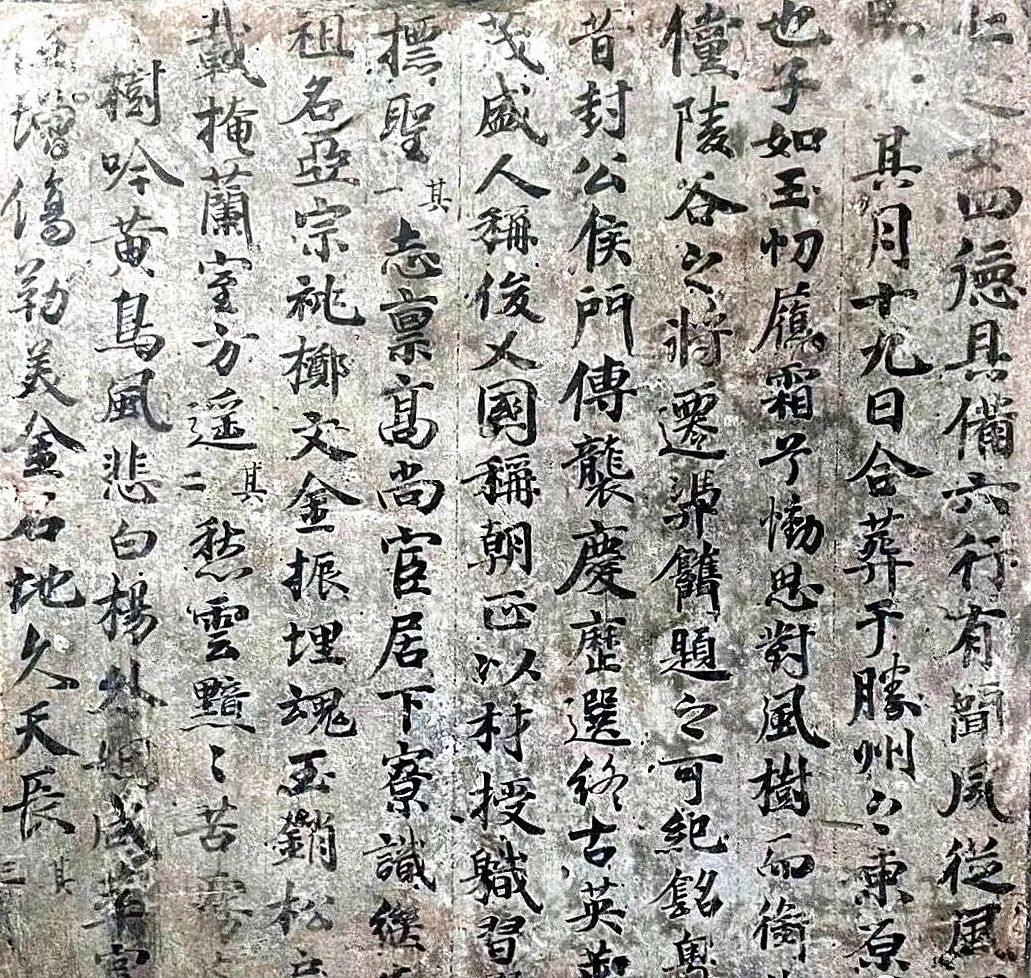 四德具備六行有聞風從風
其月十九日合葬于勝州々東原
也子如玉切膺霜兮慟思對風樹而銜
僮陵谷之將遷舞鐫題之可紀銘粵
昔封公侯門傳襲慶歷選終古英
茂盛人稱俊乂國稱朝正以材授職習
摽聖其一志禀高尚官居下寮讖繼
祖名亞宗祧擲文金振埋魂玉銷松
載掩蘭室方遥其二愁雲黯々苦霧
樹吟黄鳥風悲白楊
增傷勒美金石地久天長其三